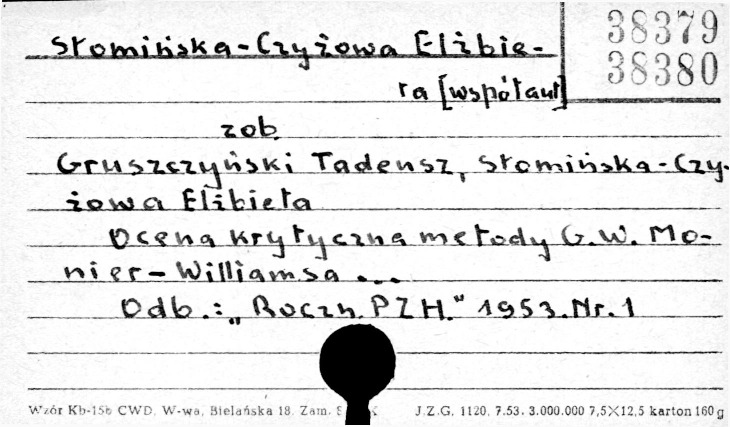 Słomińska-Czyżowa Elżbie-
38379
38380
ta [współaut]
zob.
Gruszczyński Tadeusz, Słomińska-Czy-
żowa Elżbieta
Ocena krytyczna metody G.W. Mo-
nier-Williamsa ...
Odb.: „Roczn. PZH." 1953. Nr. 1
Wzór Kb-15b CWD, W-wa, Bielańska 18. Zam. J.Z.G. 1120, 7.53. 3.000.000 7,5×12,5 karton 160 g